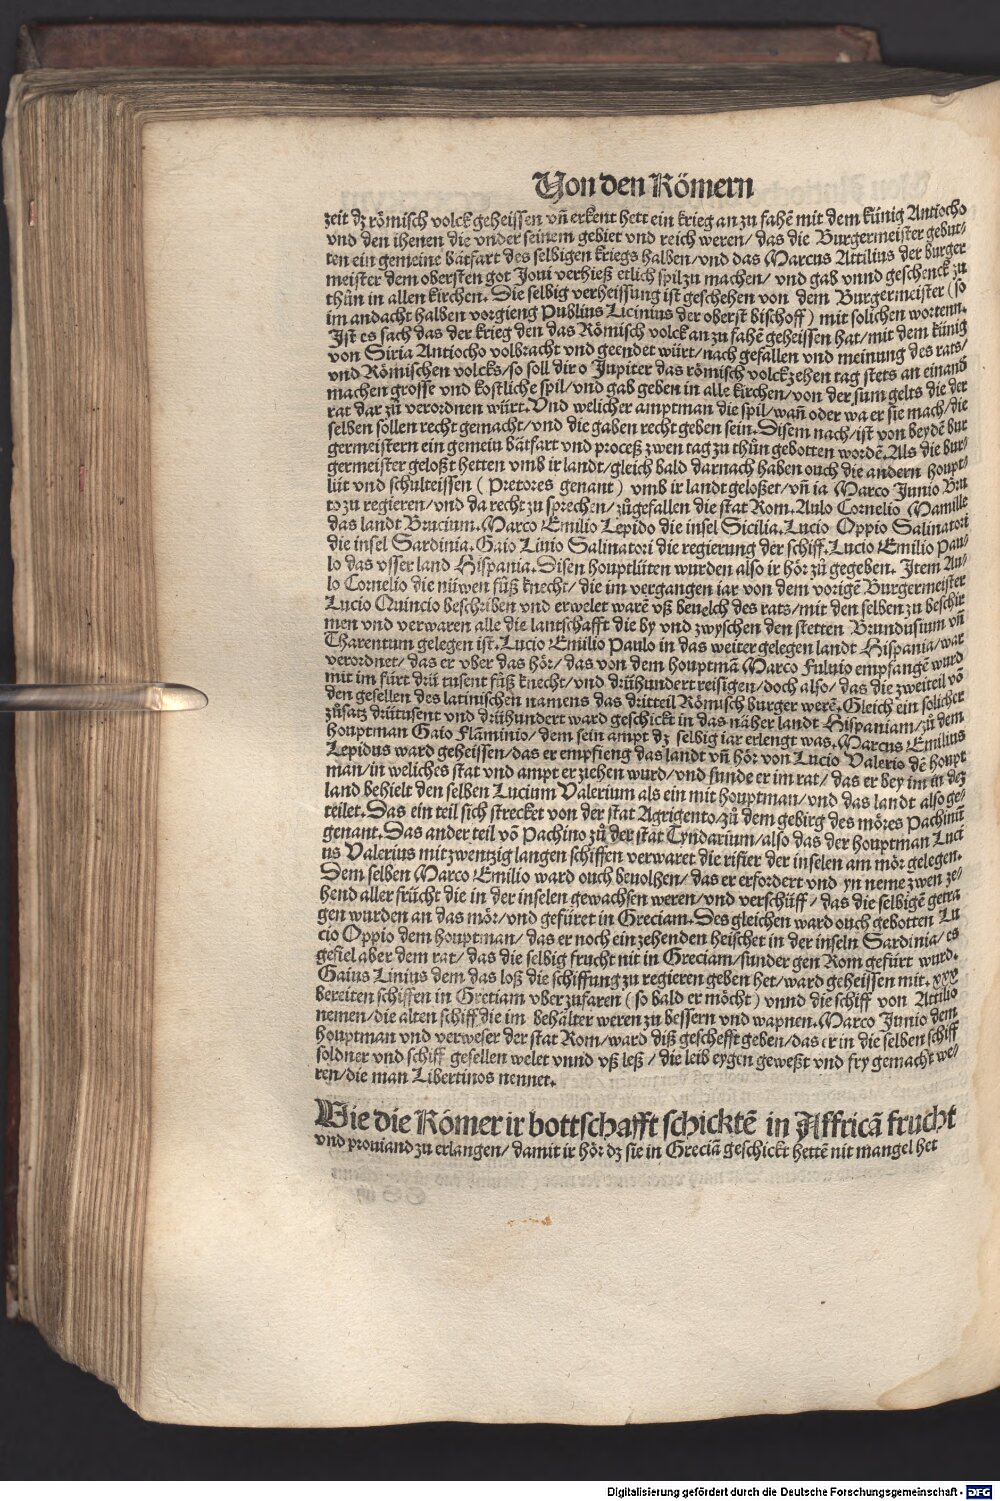 Von den Römern
zeit dz römisch volck geheissen vñ erkent hett ein krieg an zu fahẽ mit dem künig Antiocho
vnd den ihenen die vnder seinem gebiet vnd reich weren/ das die Burgermeister gebut-
ten ein gemeine bätfart des selbigen kriegs halben/ vnd das Marcus Attilius der burger
meister dem obersten got Joui verhieß etlich spil zu machen/ vnd gab vnnd geschenck zu
thůn in allen kirchen. Die selbig verheissung ist geschehen von dem Burgermeister (so
im andacht halben vorgieng Publius Licinius der oberst bischoff) mit solichen worten.
Ist es sach das der krieg den das Römisch volck an zu fahẽ geheissen hat/ mit dem künig
von Siria Antiocho volbracht vnd geendet würt/ nach gefallen vnd meinung des rats/
vnd Römischen volcks/ so soll dir o Jupiter das römisch volck zehen tag stets an einand
machen grosse vnd kostliche spil/ vnd gab geben in alle kirchen/ von der sum gelts die der
rat dar zů verordnen würt. Vnd welicher amptman die spil/ wañ oder wa er sie mach/ die
selben sollen recht gemacht/ vnd die gaben recht geben sein. Disem nach/ ist von beydẽ bur
germeistern ein gemein bätfart vnd proceß zwen tag zu thůn gebotten wordẽ. Als die bur-
germeister geloßt hetten vmb ir landt/ gleich bald darnach haben ouch die andern houpt-
lüt vnd schulteissen (Pretores genant) vmb ir landt geloßet/ vñ ia Marco Junio Bru
to zu regieren/ vnd da recht zu sprechen/ zůgefallen die stat Rom. Aulo Cornelio Mamille
das landt Brucium. Marco Emilio Lepido die insel Sicilia. Lucio Oppio Salinatori
die insel Sardinia. Gaio Linio Salinatori die regierung der schiff. Lucio Emilio Pau-
lo das vsser land Hispania. Disen houptlüten wurden also ir hör zů gegeben. Item Au-
lo Cornelio die nüwen fůß knecht/ die im vergangen iar von dem vorigẽ Burgermeister
Lucio Quincio beschriben vnd erwelet warẽ vß beuelch des rats/ mit den selben zu beschir
men vnd verwaren alle die lantschafft die by vnd zwyschen den stetten Brundusium vñ
Tharentum gelegen ist. Lucio Emilio Paulo in das weiter gelegen landt Hispania/ war
verordnet/ das er vber das hör/ das von dem houptmã Marco Fuluio empfangẽ wurd
mit im fürt drü tusent fůß knecht/ vnd drühundert reisigen/ doch also/ das die zweiteil võ
den gesellen des latinischen namens das dritteil Römisch burger werẽ. Gleich ein solicher
zůsatz drütusent vnd drühundert ward geschickt in das näher landt Hispaniam/ zů dem
houptman Gaio Flãminio/ dem sein ampt dz selbig iar erlengt was. Marcus Emilius
Lepidus ward geheissen/ das er empfieng das landt vñ hör von Lucio Valerio dẽ houpt
man/ in weliches stat vnd ampt er ziehen wurd/ vnd funde er im rat/ das er bey im in dez
land behielt den selben Lucium Valerium als ein mit houptman/ vnd das landt also ge-
teilet. Das ein teil sich strecket von der stat Agrigento/ zů dem gebirg des möres Pachinũ
genant. Das ander teil võ Pachino zů der stat Tyndarium/ also das der houptman Luci
us Valerius mit zwentzig langen schiffen verwaret die rifier der inselen am mör gelegen.
Dem selben Marco Emilio ward ouch beuolhen/ das er erfordert vnd yn neme zwen ze-
hend aller frücht die in der inselen gewachsen weren/ vnd verschüff/ das die selbigẽ getra
gen wurden an das mör/ vnd gefüret in Greciam. Des gleichen ward ouch gebotten Lu
cio Oppio dem houptman/ das er noch ein zehenden heischet in der inseln Sardinia/ es
gefiel aber dem rat/ das die selbig frucht nit in Greciam/ sunder gen Rom gefürt wurd.
Gaius Linius dem das loß die schiffung zu regieren geben het/ ward geheissen mit. xxx
bereiten schiffen in Gretiam vber zufaren (so bald er möcht) vnnd die schiff von Attilio
nemen/ die alten schiff die im behälter weren zu bessern vnd wapnen. Marco Junio dem
houptman vnd verweser der stat Rom/ ward diß geschefft geben/ das er in die selben schiff
soldner vnd schiff gesellen welet vnnd vß leß/ die leib eygen geweßt vnd fry gemacht we-
ren/ die man Libertinos nennet.
Wie die Römer ir bottschafft schicktẽ in Affricã frucht
vnd prouiand zu erlangen/ damit ir hör dz sie in Greciã geschickt hettẽ nit mangel het
Digitalisierung gefördert durch die Deutsche Forschungsgemeinschaft - DFG